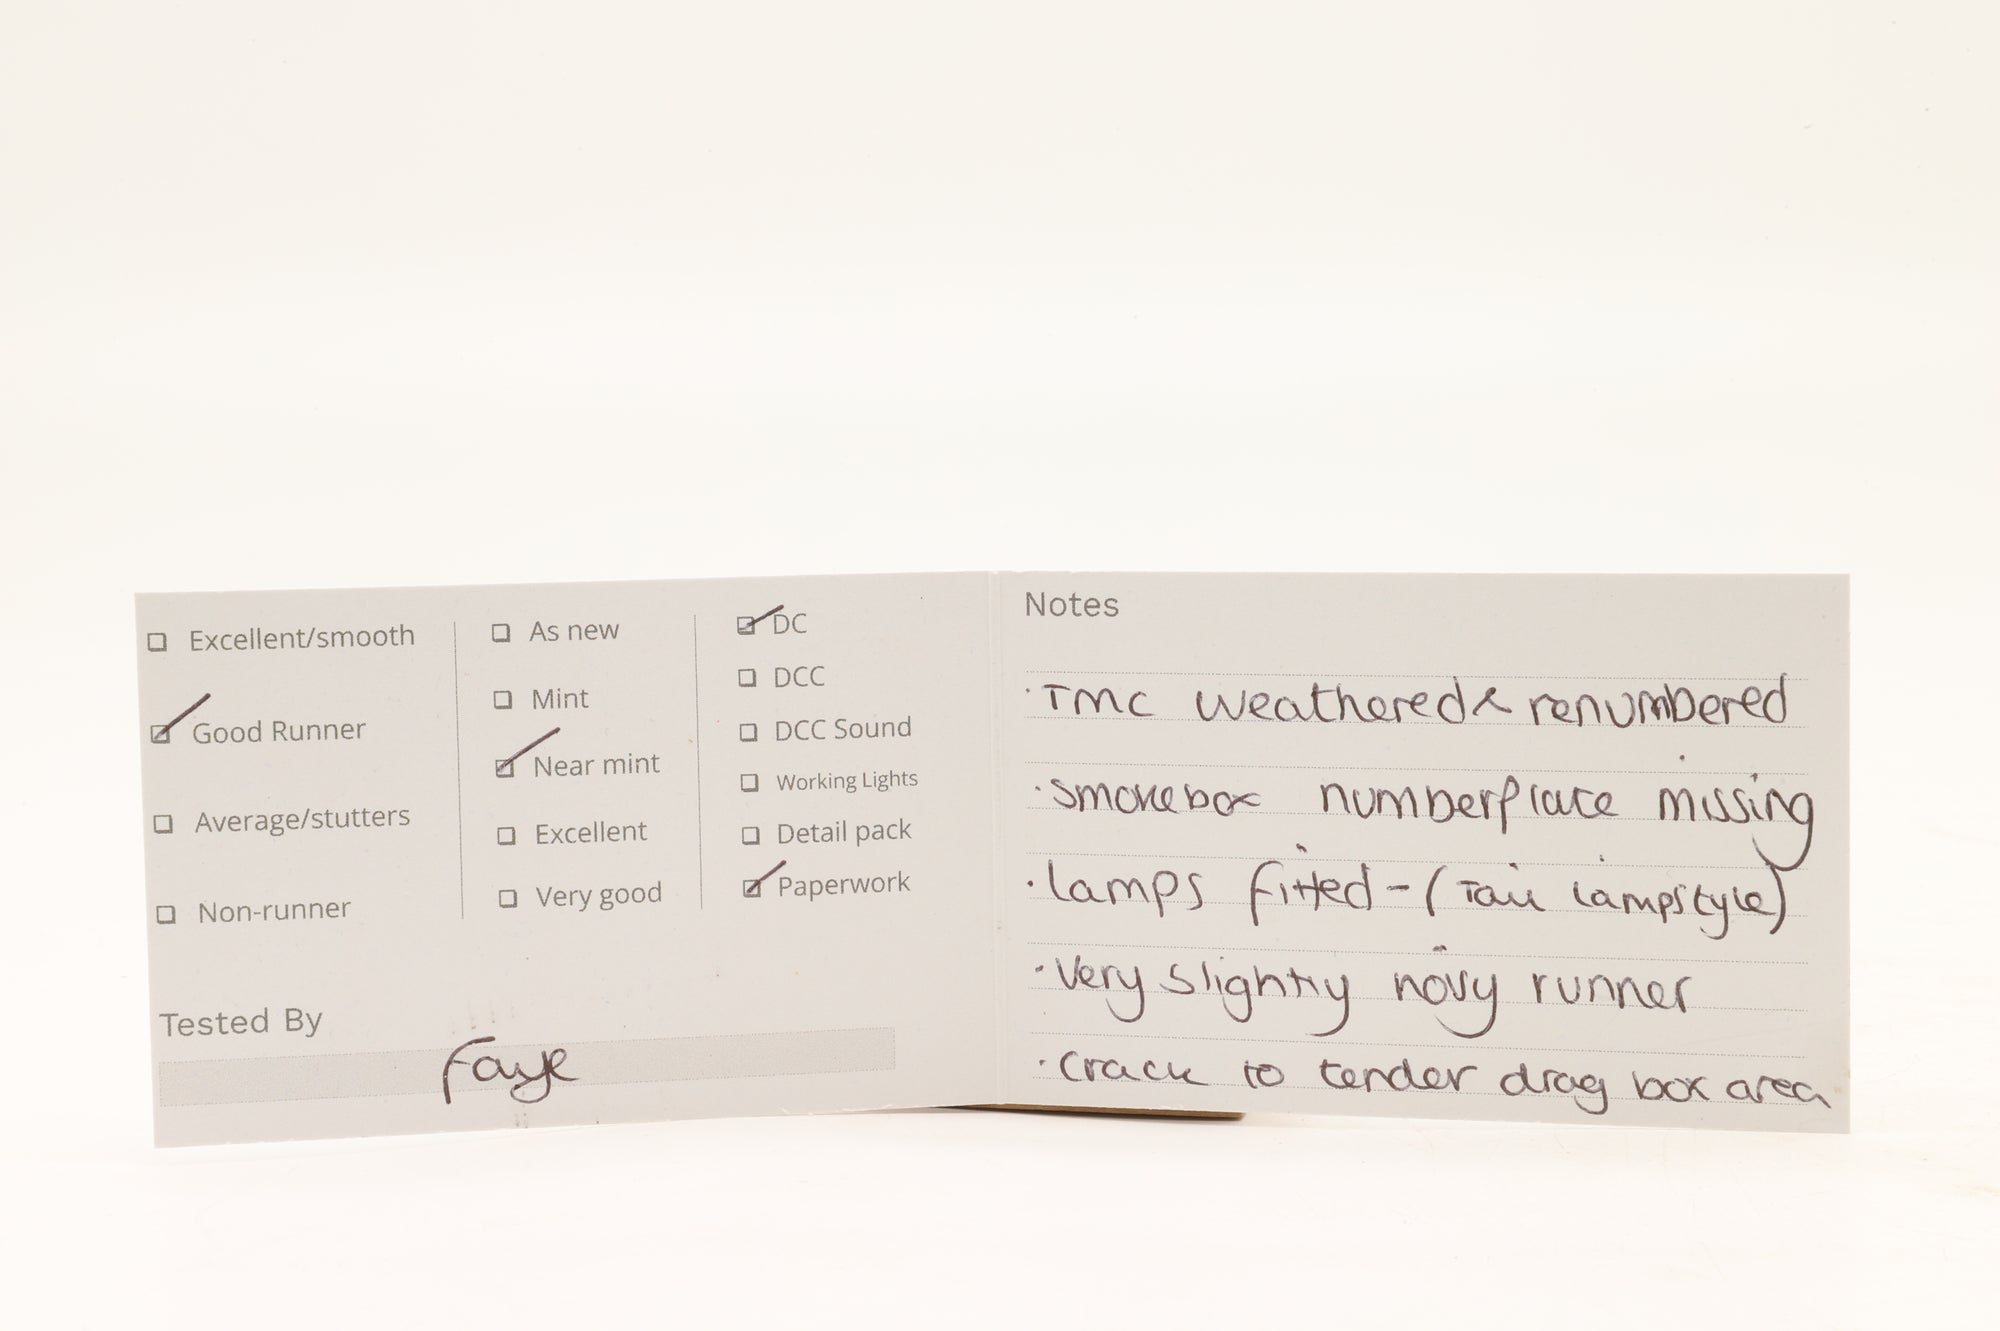 Excellent/smooth
Good Runner
Average/stutters
Non-runner
As new
Mint
Near mint
Excellent
Very good
DC
DCC
DCC Sound
Working Lights
Detail pack
Paperwork
Tested By
Faye
Notes
· TMC weathered & renumbered
· smokebox numberplate missing
· lamps fitted - (Tail lamp style)
· very slightly noisy runner
· crack to tender drag box area